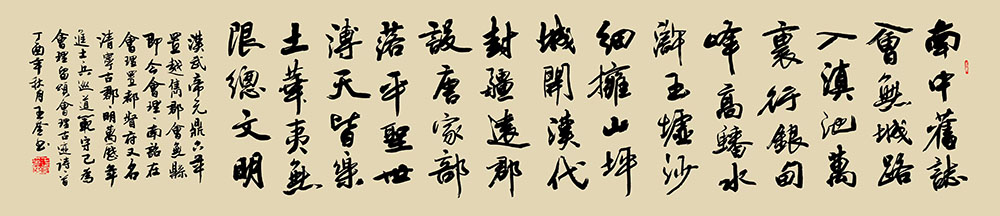 南中舊誌
會無城路
入滇池萬
裏行銀甸
峰高蟠水
滸玉墟沙
細擁山坪
城開漢代
封疆遠郡
設唐家部
落平聖世
溥天皆樂
土華夷無
限總文明
漢武帝元鼎六年
置越雋郡會無縣
即今會理南詔在
會理置都督府又名
清寧古郡明萬曆年
進士兵巡道範守己為
會理留頌會理古迹詩一首
丁酉年秋月王書